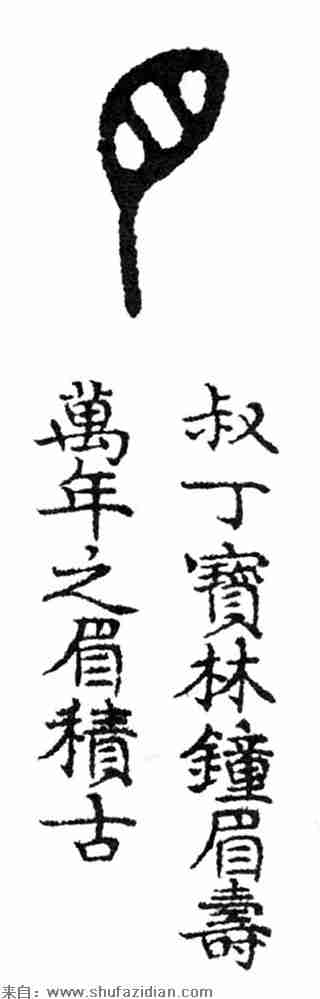 叔丁寶林鐘眉壽
萬年之眉積古
来自：www.shufazidian.com